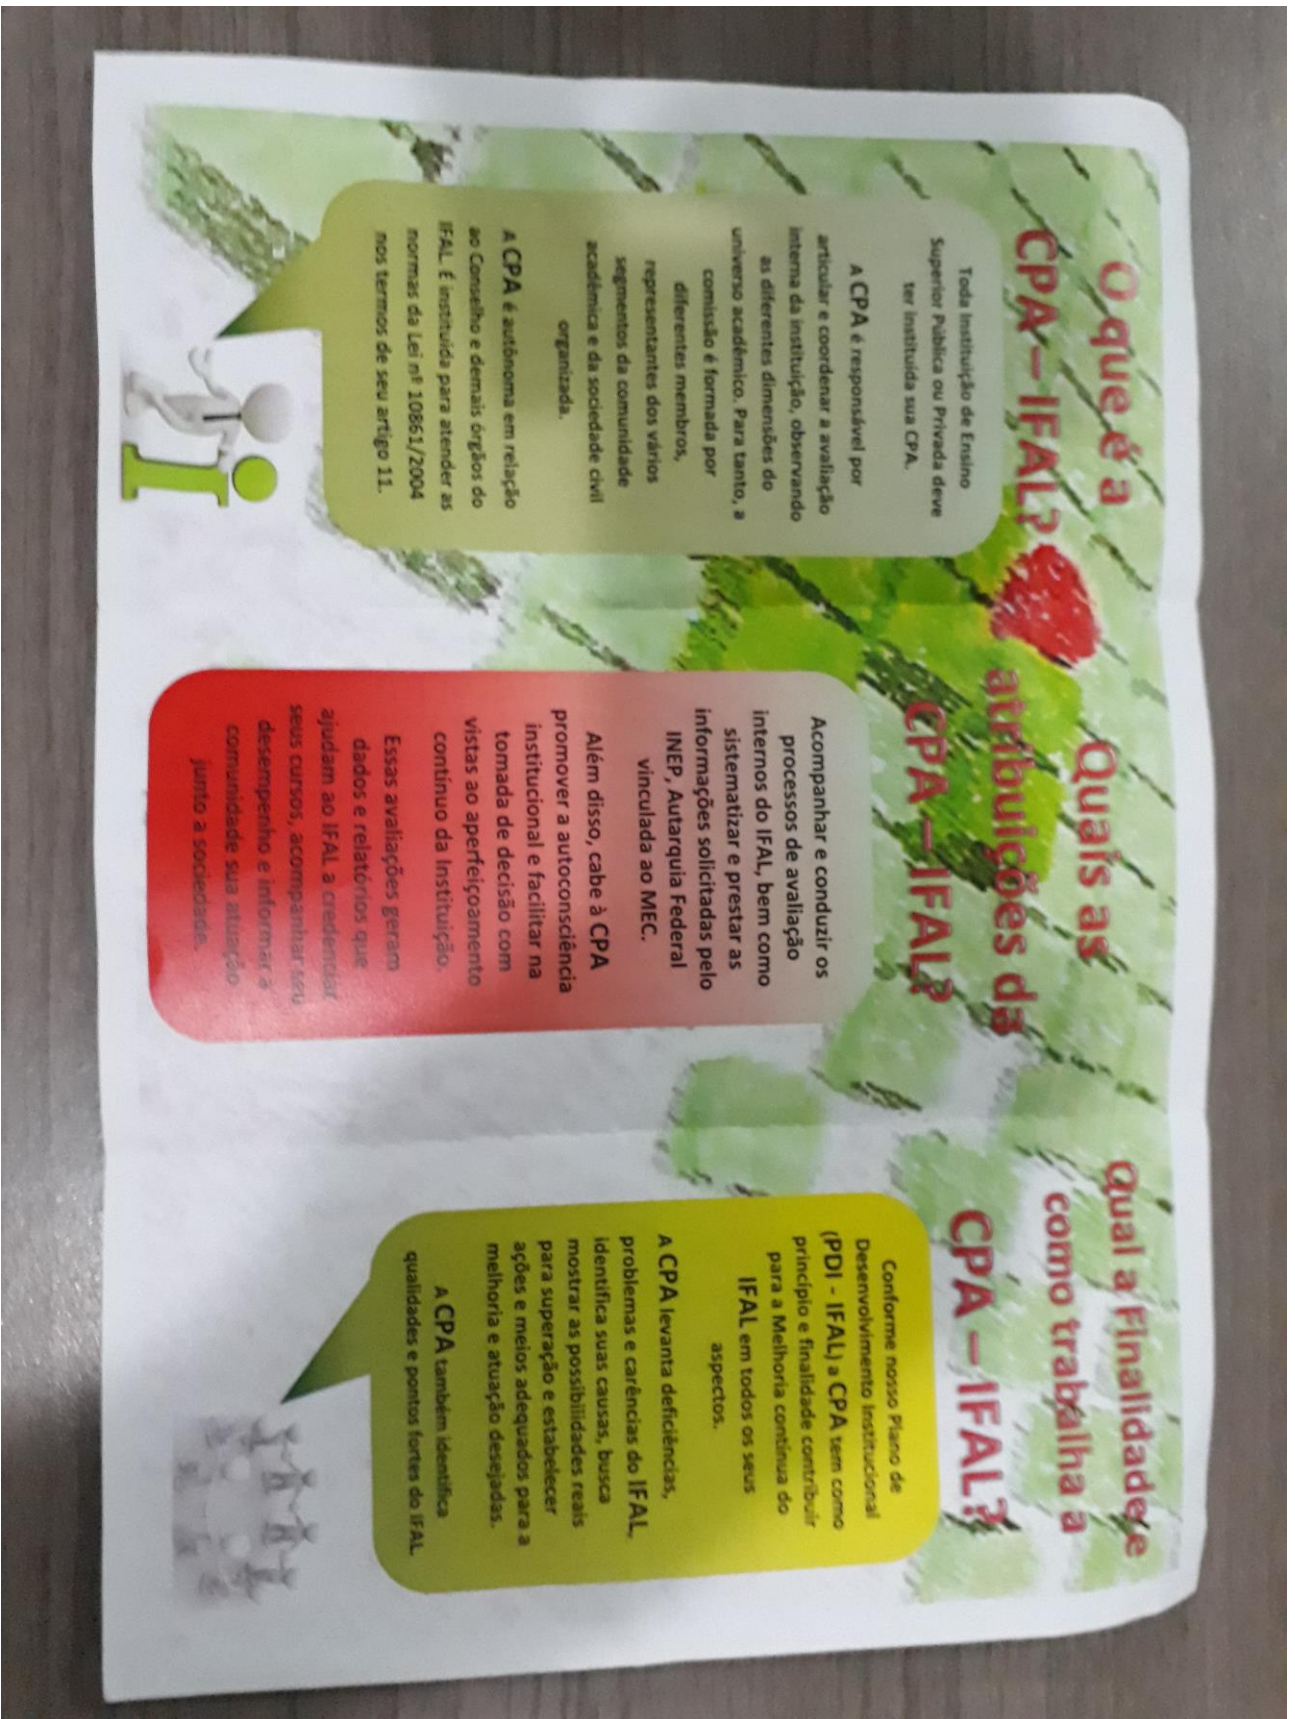 O que é a
CPA – IFAL?
Toda Instituição de Ensino
Superior Pública ou Privada deve
ter instituída sua CPA.
A CPA é responsável por
articular e coordenar a avaliação
interna da instituição, observando
as diferentes dimensões do
universo acadêmico. Para tanto, a
comissão é formada por
diferentes membros,
representantes dos vários
segmentos da comunidade
acadêmica e da sociedade civil
organizada.
A CPA é autônoma em relação
ao Conselho e demais órgãos do
IFAL. É instituída para atender as
normas da Lei nº 10861/2004
nos termos de seu artigo 11.
i
Quais as
atribuições da
CPA – IFAL?
Acompanhar e conduzir os
processos de avaliação
internos do IFAL, bem como
sistematizar e prestar as
informações solicitadas pelo
INEP, Autarquia Federal
vinculada ao MEC.
Além disso, cabe à CPA
promover a autoconsciência
institucional e facilitar na
tomada de decisão com
vistas ao aperfeiçoamento
contínuo da Instituição.
Essas avaliações geram
dados e relatórios que
ajudam ao IFAL a credenciar
seus cursos, acompanhar seu
desempenho e informar a
comunidade sua atuação
junto a sociedade.
Qual a Finalidade e
como trabalha a
CPA – IFAL?
Conforme nosso Plano de
Desenvolvimento Institucional
(PDI - IFAL) a CPA tem como
princípio e finalidade contribuir
para a Melhoria contínua do
IFAL em todos os seus
aspectos.
A CPA levanta deficiências,
problemas e carências do IFAL,
identifica suas causas, busca
mostrar as possibilidades reais
para superação e estabelecer
ações e meios adequados para a
melhoria e atuação desejadas.
A CPA também identifica
qualidades e pontos fortes do IFAL.